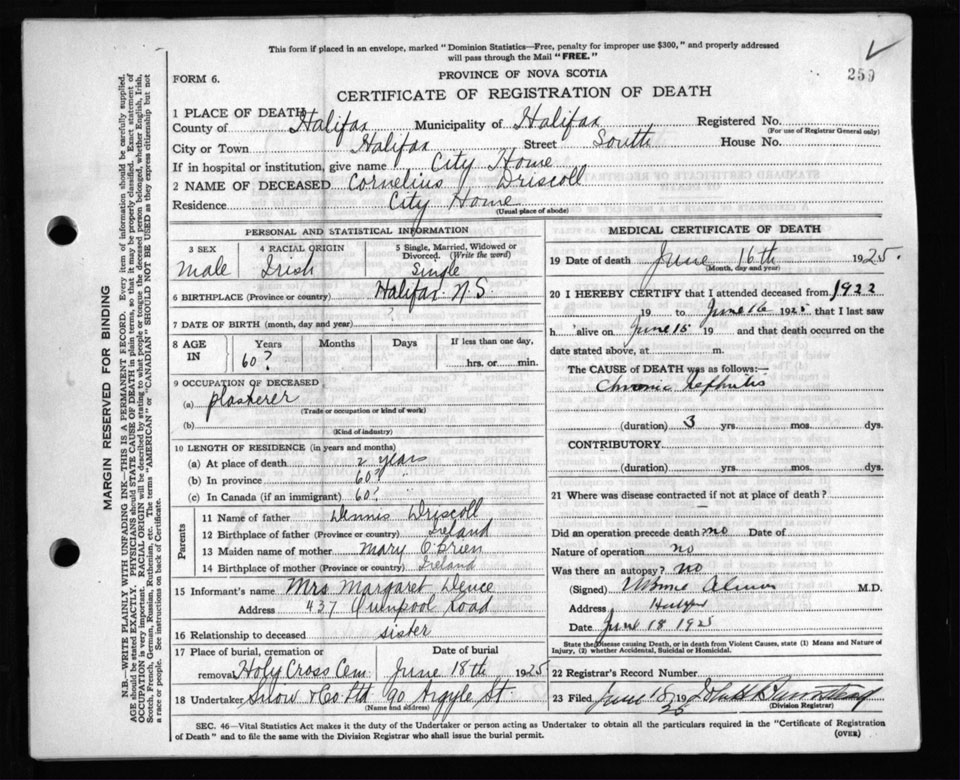 This form if placed in an envelope, marked "Dominion Statistics—Free, penalty for improper use $300," and properly addressed
will pass through the Mail "FREE."
259
FORM 6.
PROVINCE OF NOVA SCOTIA
CERTIFICATE OF REGISTRATION OF DEATH
1 PLACE OF DEATH
County of Halifax Municipality of Halifax Registered No.
(For use of Registrar General only)
City or Town Halifax Street South House No.
If in hospital or institution, give name City Home
2 NAME OF DECEASED Cornelius J Driscoll
Residence City Home
(Usual place of abode)
PERSONAL AND STATISTICAL INFORMATION
3 SEX 4 RACIAL ORIGIN 5 Single, Married, Widowed or
Divorced. (Write the word)
Male Irish Single
6 BIRTHPLACE (Province or country) Halifax N.S.
7 DATE OF BIRTH (month, day and year) ?
8 AGE IN Years Months Days If less than one day,
60? hrs. or min.
9 OCCUPATION OF DECEASED
(a) plasterer
(Trade or occupation or kind of work)
(b)
(Kind of industry)
10 LENGTH OF RESIDENCE (in years and months)
(a) At place of death 2 years
(b) In province 60?
(c) In Canada (if an immigrant) 60?
Parents
11 Name of father Dennis Driscoll
12 Birthplace of father (Province or country) Ireland
13 Maiden name of mother Mary O'Brien
14 Birthplace of mother (Province or country) Ireland
15 Informant's name Mrs Margaret Deuce
Address 437 Quinpool Road
16 Relationship to deceased sister
17 Place of burial, cremation or Date of burial
removal Holy Cross Cem June 18th 1925
18 Undertaker Snow & Co Ltd 90 Argyle St
(Name and address)
MEDICAL CERTIFICATE OF DEATH
19 Date of death June 16th 1925.
(Month, day and year)
20 I HEREBY CERTIFY that I attended deceased from 1922
19 to June 16 1925 that I last saw
h alive on June 15 19 and that death occurred on the
date stated above, at m.
The CAUSE OF DEATH was as follows:—
Chronic Nephritis
(duration) 3 yrs. mos. dys.
CONTRIBUTORY
(duration) yrs. mos. dys.
21 Where was disease contracted if not at place of death?
Did an operation precede death? no Date of
Nature of operation no
Was there an autopsy? no
(Signed) Almon M.D.
Address Halifax
Date June 18 1925
State the disease causing Death, or in death from Violent Causes, state (1) Means and Nature of
Injury, (2) whether Accidental, Suicidal or Homicidal.
22 Registrar's Record Number
23 Filed June 18 1925
(Division Registrar)
SEC. 46—Vital Statistics Act makes it the duty of the Undertaker or person acting as Undertaker to obtain all the particulars required in the "Certificate of Registration
of Death" and to file the same with the Division Registrar who shall issue the burial permit. (OVER)
MARGIN RESERVED FOR BINDING
N.B.—WRITE PLAINLY WITH UNFADING INK—THIS IS A PERMANENT RECORD. Every item of information should be carefully supplied.
AGE should be stated EXACTLY. PHYSICIANS should STATE CAUSE OF DEATH in plain terms, so that it may be properly classified. Exact statement of
OCCUPATION is very important. RACIAL ORIGIN will be described by stating to what people or tongue the deceased person belonged, whether English, Irish,
Scotch, French, German, Russian, Ruthenian, etc. The terms "AMERICAN" or "CANADIAN" SHOULD NOT BE USED as they express citizenship but not
a race or people. See instructions on back of Certificate.